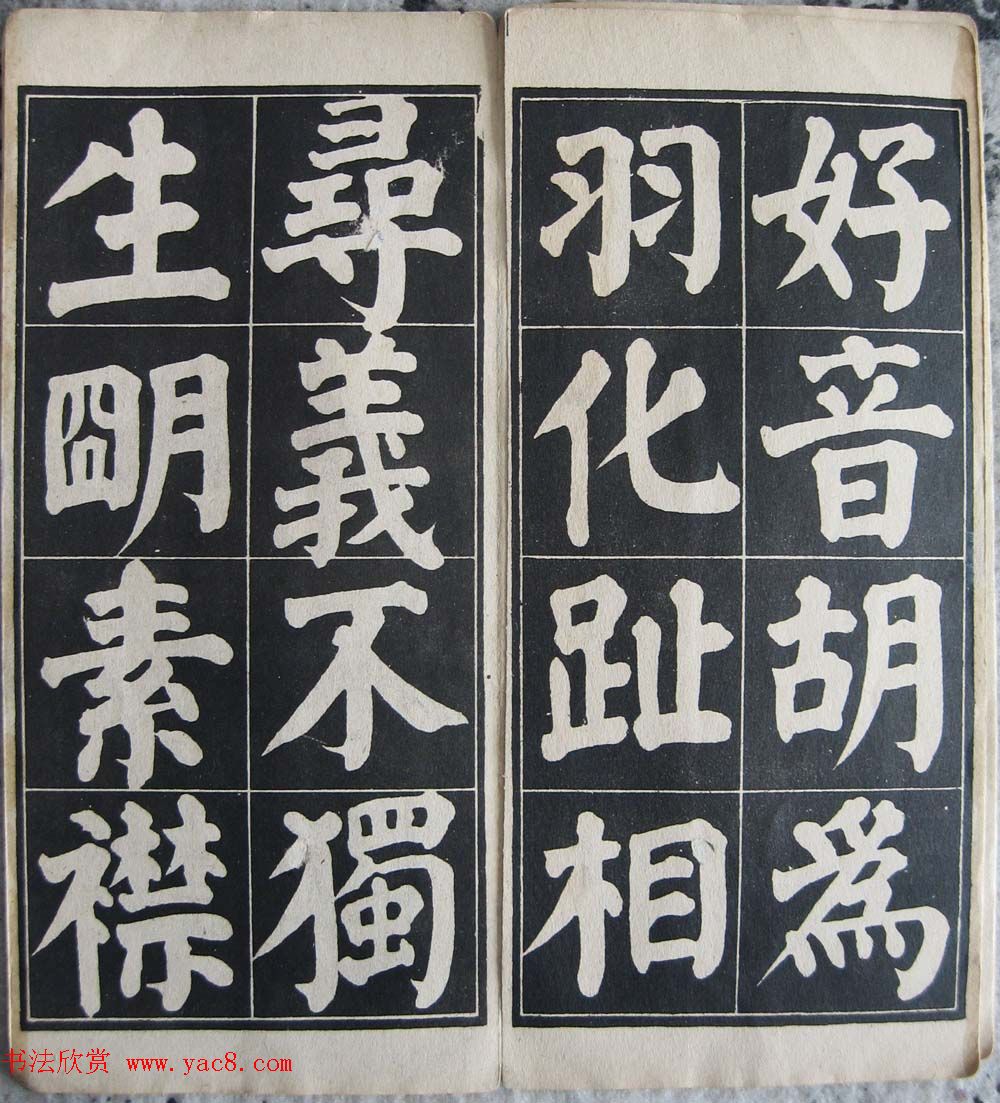 好音胡爲
羽化趾相
尋義不獨
生朙素襟
书法欣赏 www.yac8.com